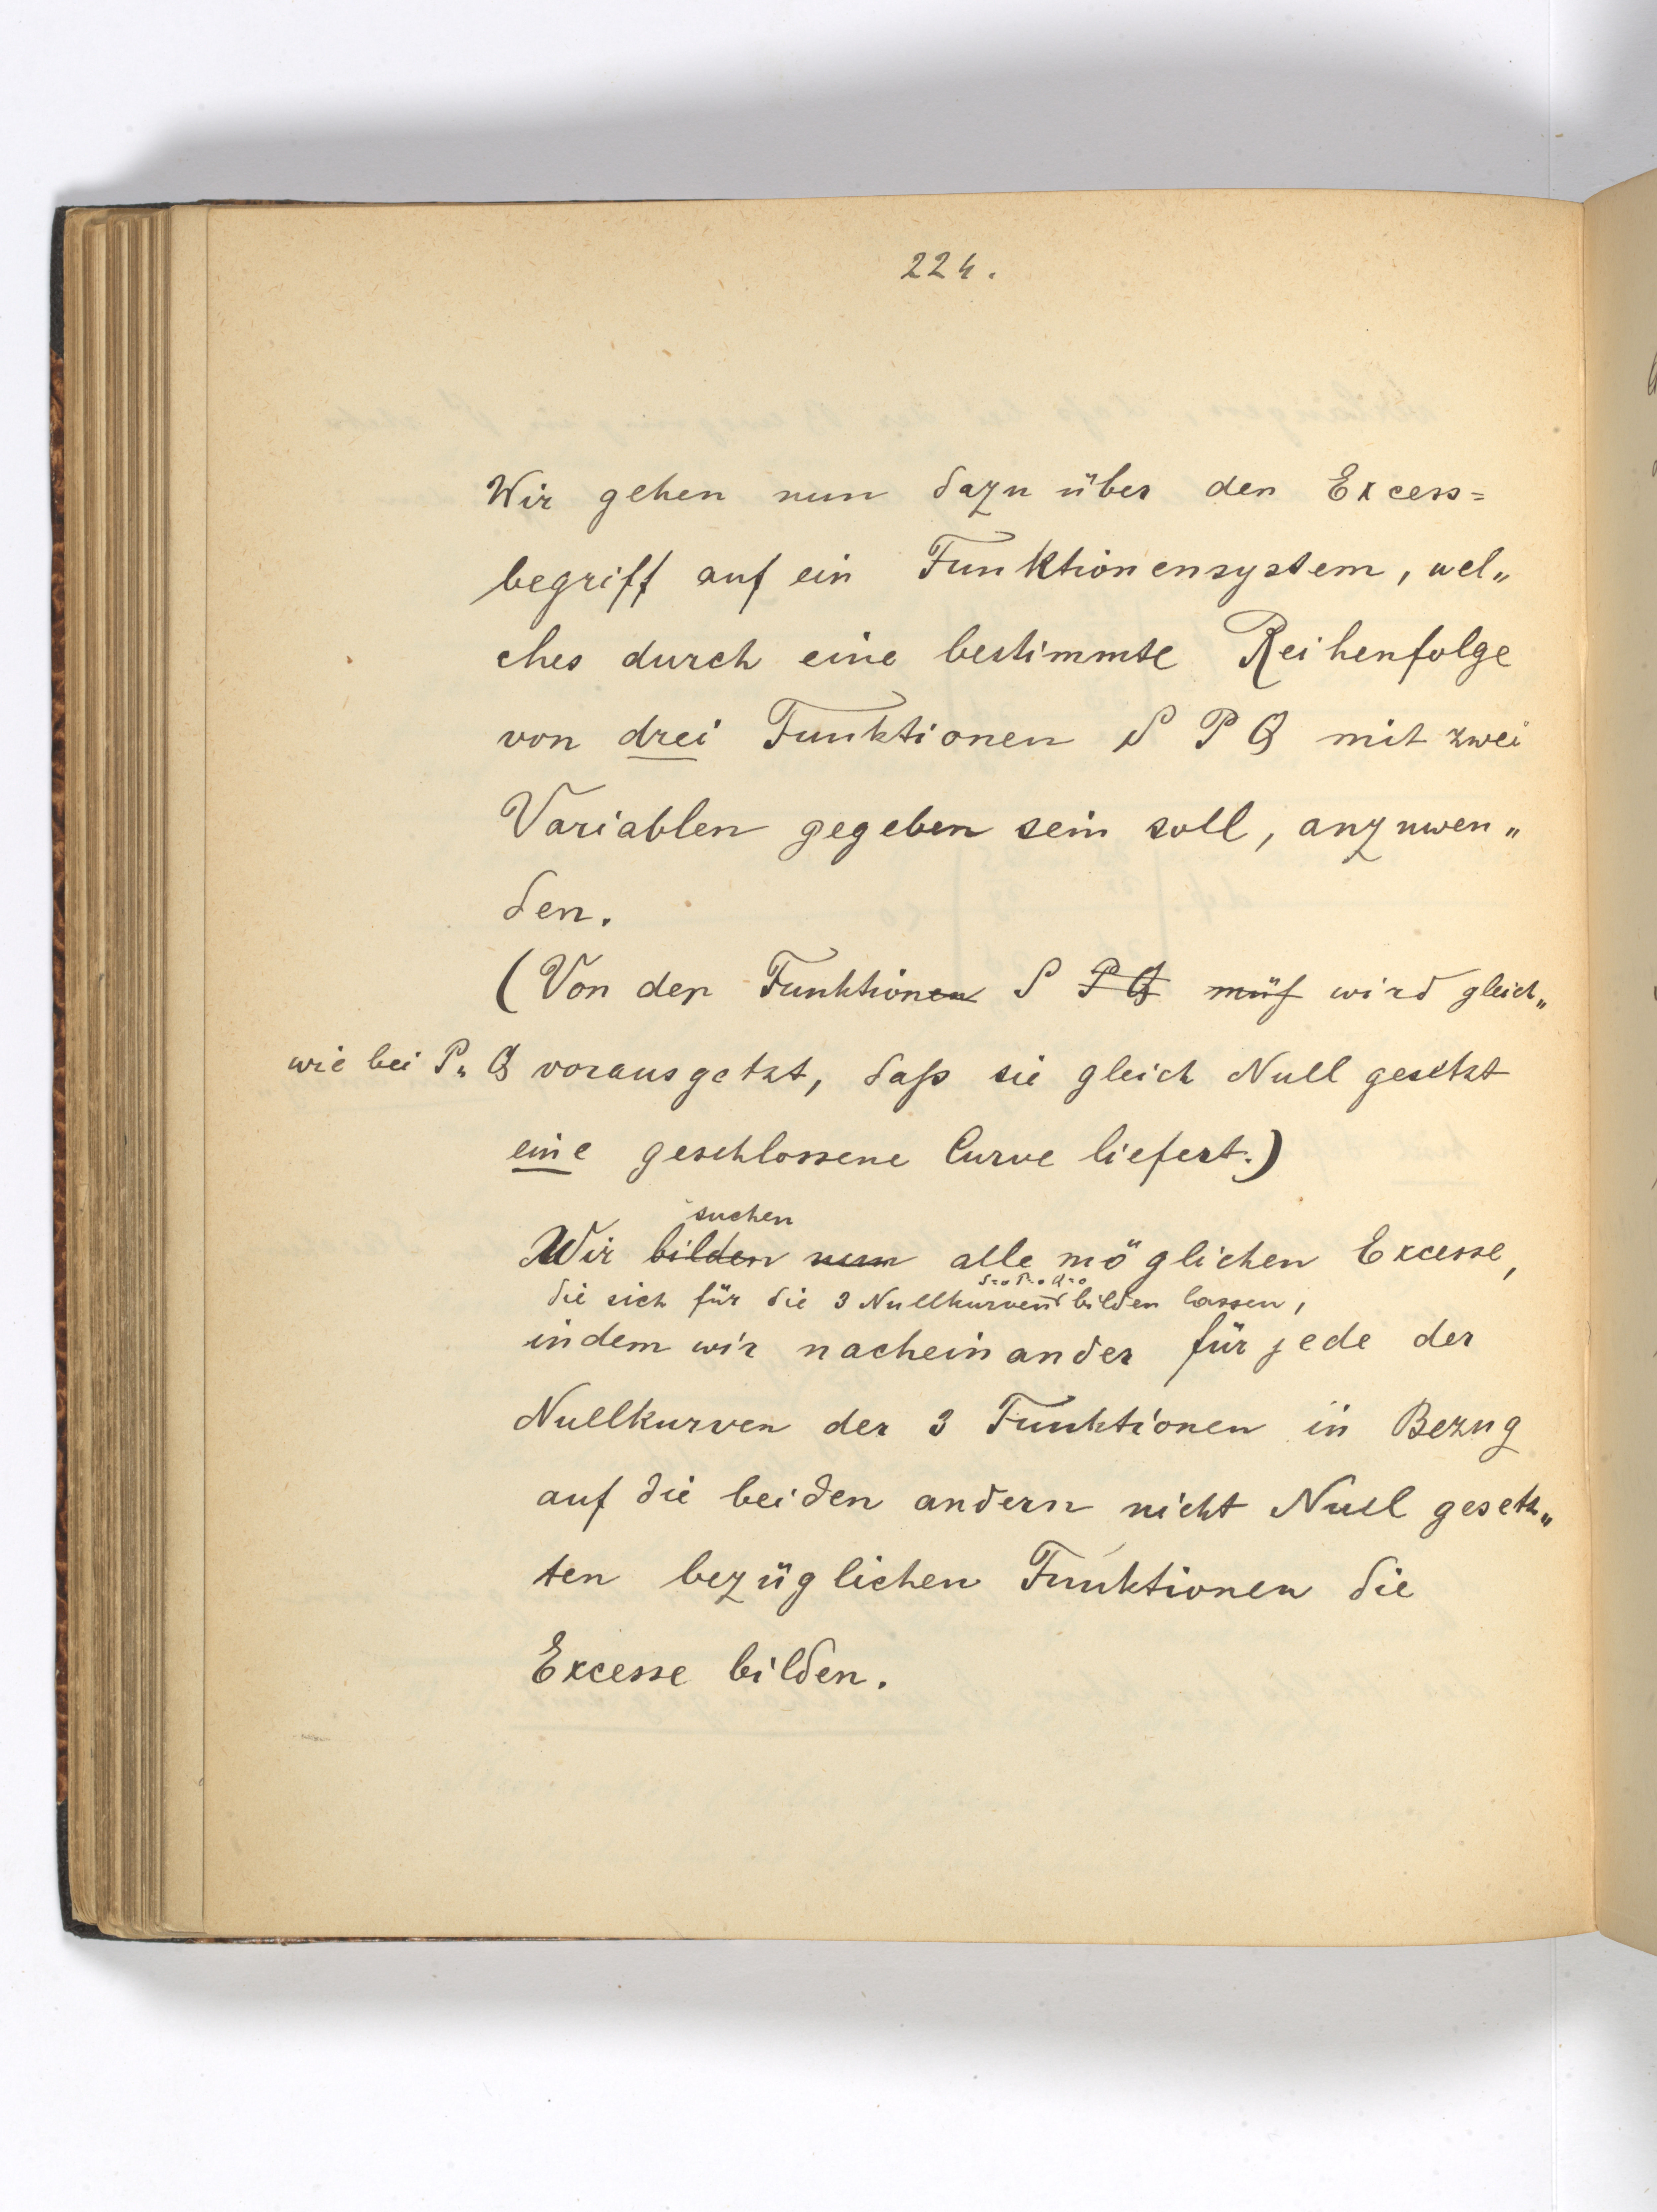 224.
Wir gehen nun dazu über den Excess=
begriff auf ein Funktionensystem, wel„
ches durch eine bestimmte Reihenfolge
von drei Funktionen S P Q mit zwei
Variablen gegeben sein soll, anzuwen„
den.
(Von der Funktionen S P Q muß wird gleich„
wie bei P. Q vorausgetzt, daß sie gleich Null gesetzt
eine geschlossene Curve liefert.)
suchen
Wir bilden nun alle möglichen Excesse,
S=0 P=0 Q=0
die sich für die 3 Nullkurven bilden lassen,
indem wir nacheinander für jede der
Nullkurven der 3 Funktionen in Bezug
auf die beiden andern nicht Null gesetz„
ten bezüglichen Funktionen die
Excesse bilden.